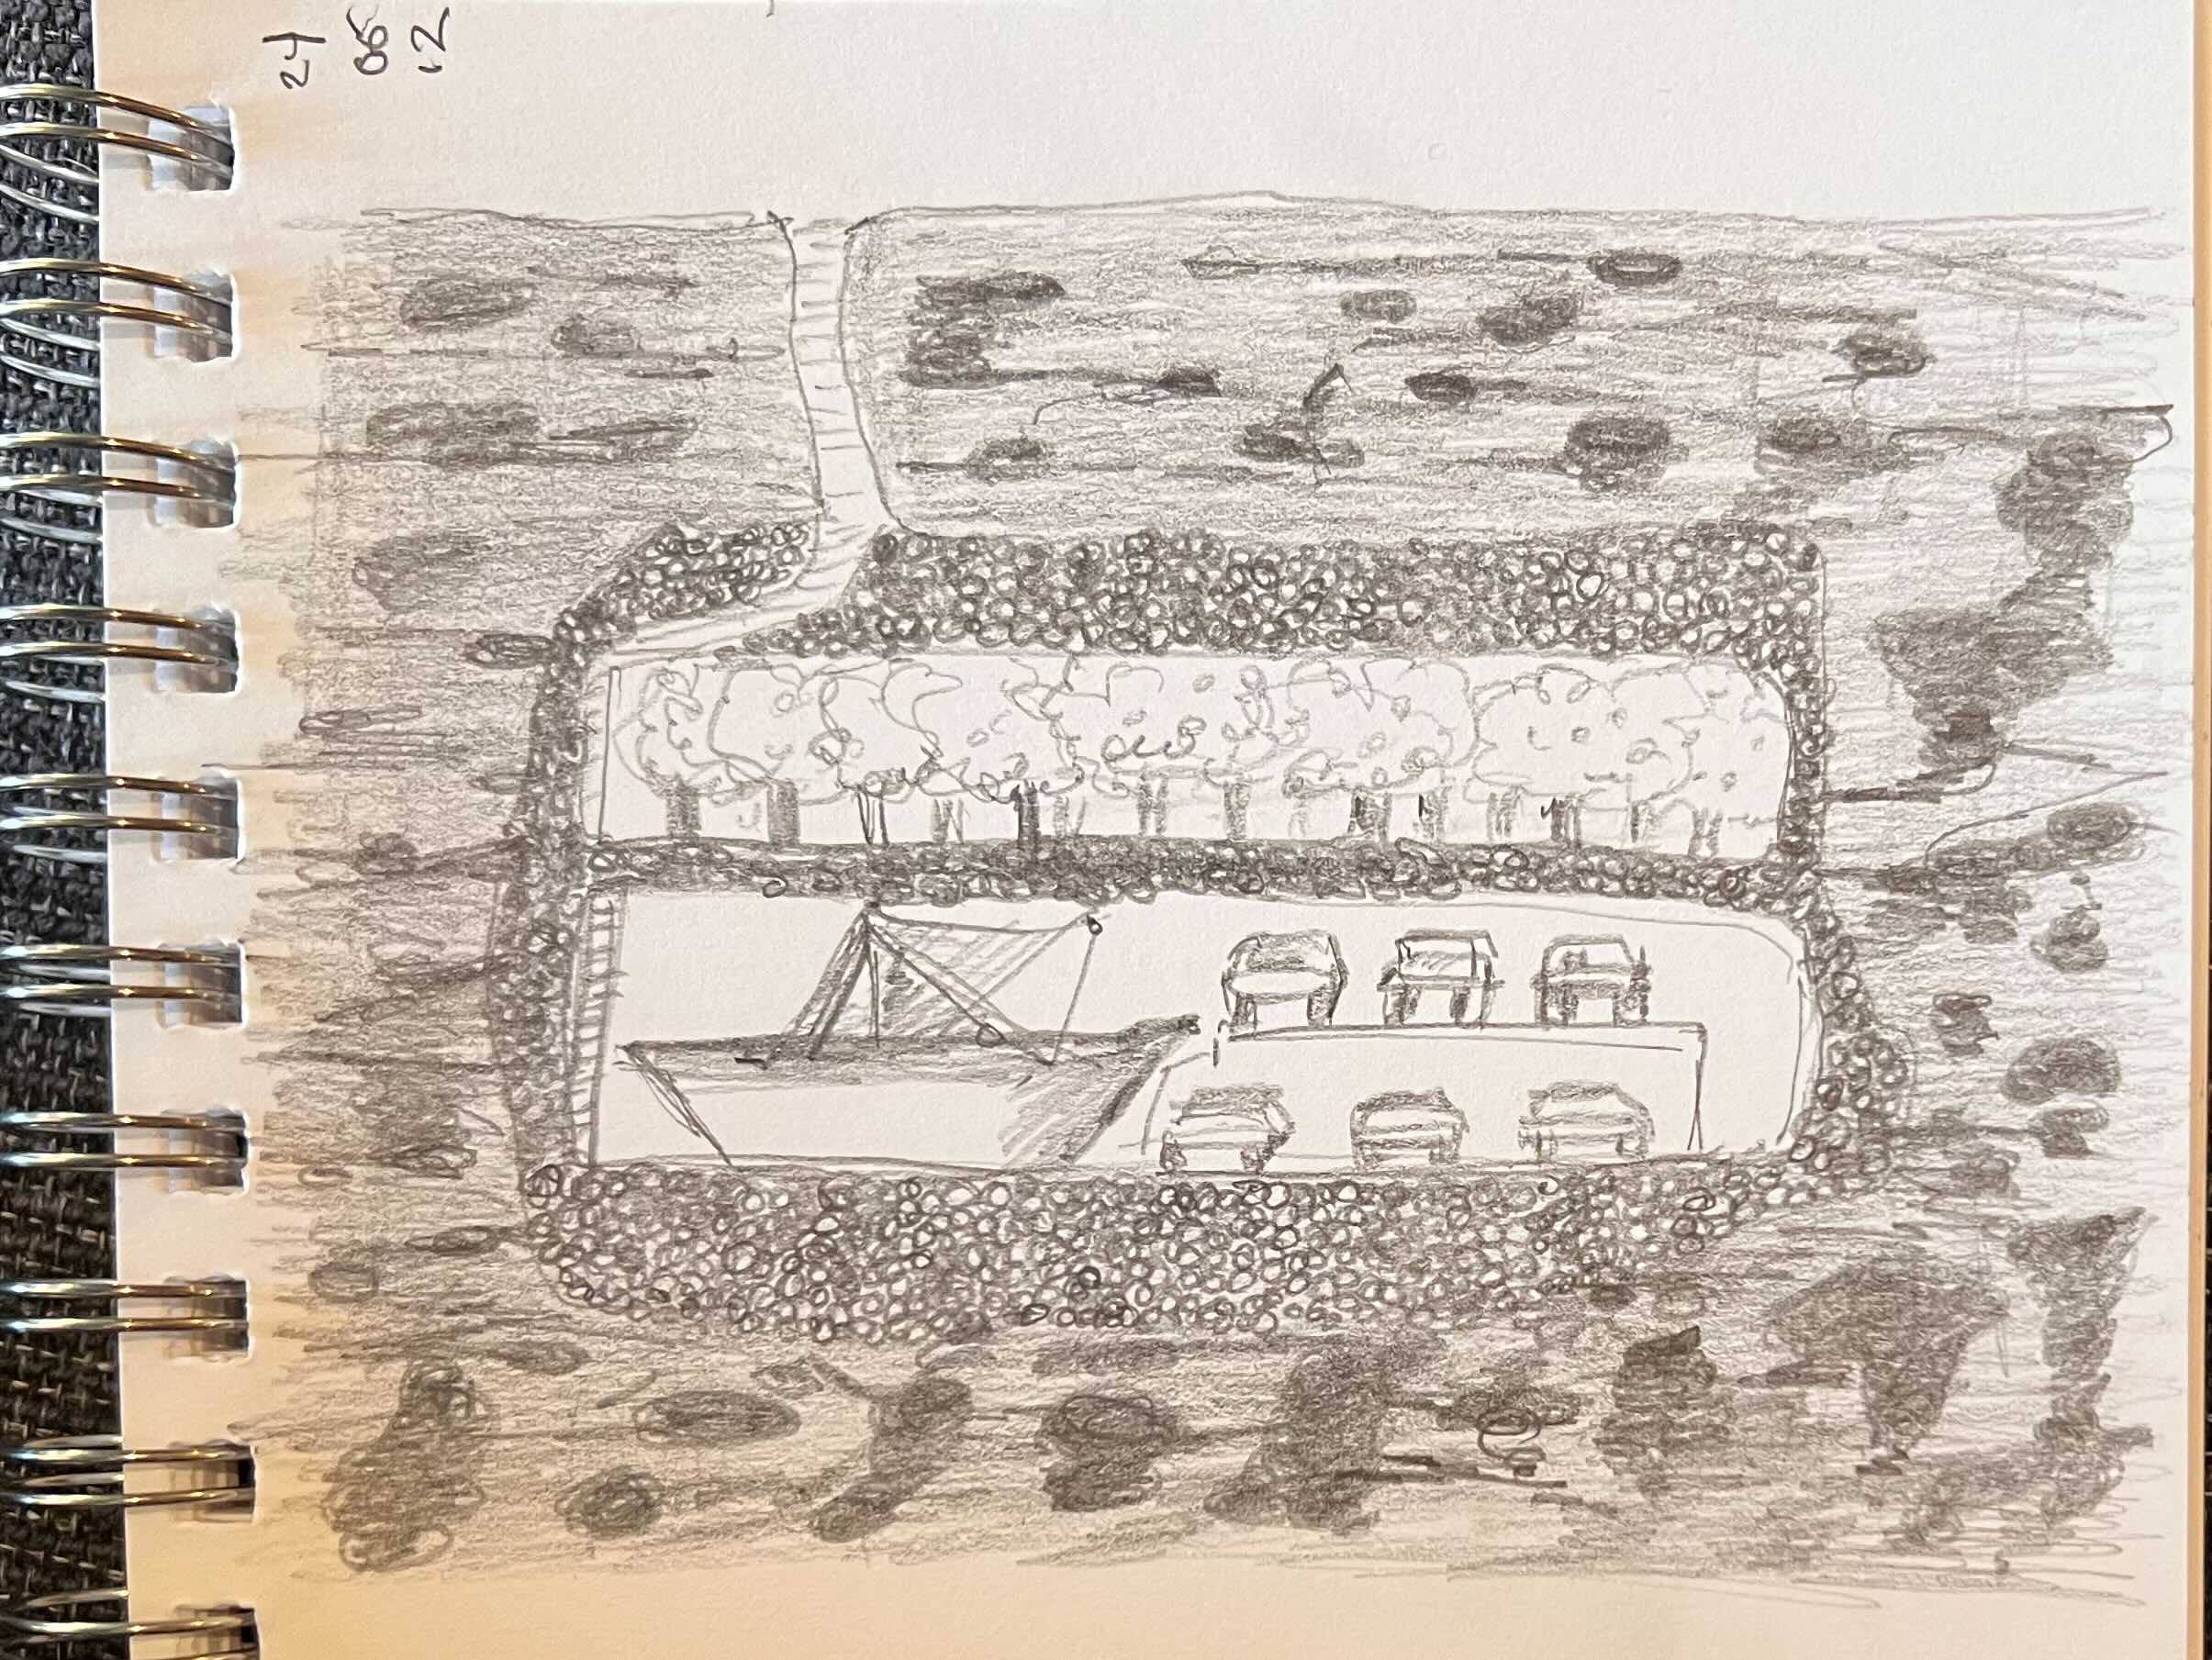 24
05
12